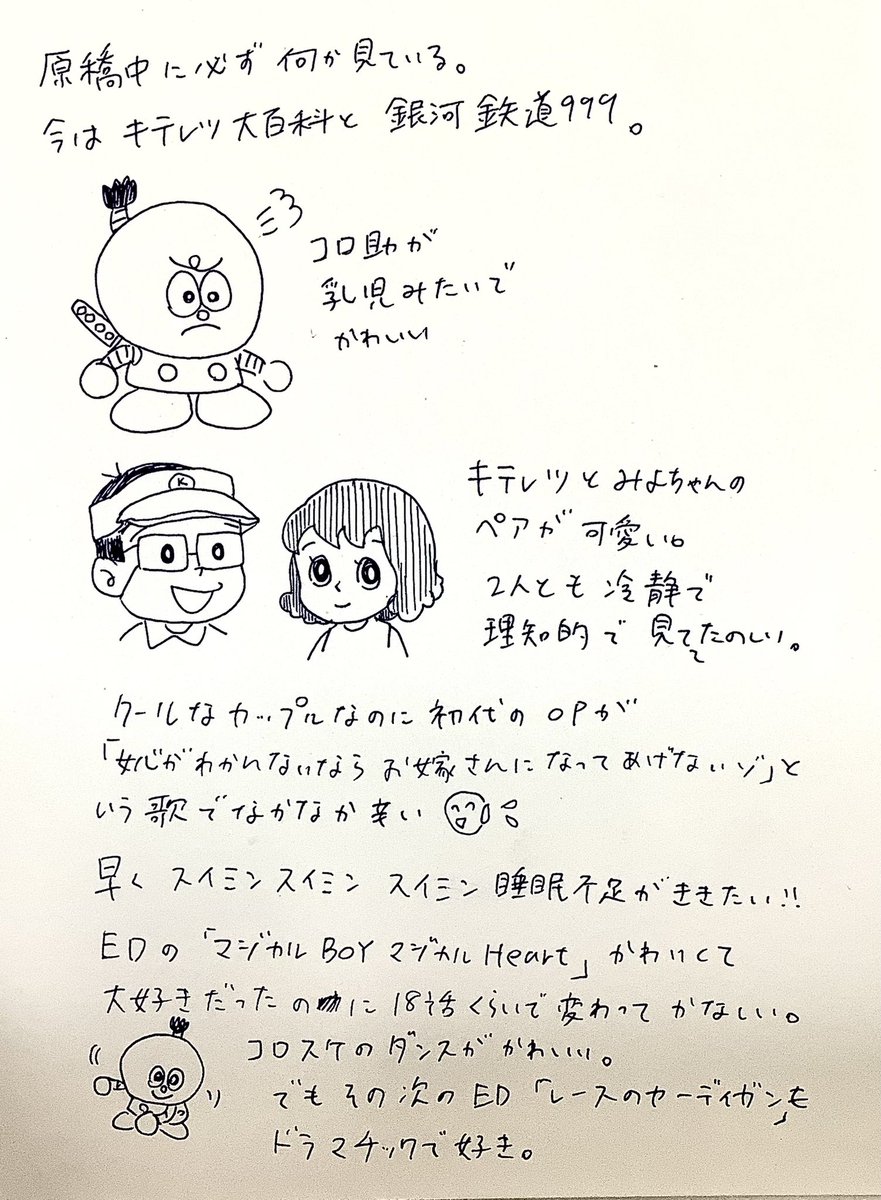 原稿中に必ず何か見ている。
今はキテレツ大百科と銀河鉄道999。
コロ助が
乳児みたいで
かわいい
K
キテレツとみよちゃんの
ペアが可愛い。
2人とも冷静で
理知的で見ててたのしい。
クールなカップルなのに初代のOPが
「女心がわかんないなら お嫁さんになってあげないゾ」と
いう歌でなかなか辛い
早く スイミンスイミン スイミン睡眠不足がききたい!!
EDの「マジカルBOYマジカルHeart」かわいくて
大好きだったのに18話くらいで変わってかなしい。
コロスケのダンスがかわいい。
でもその次のED「レースのカーディガン」も
ドラマチックで好き。